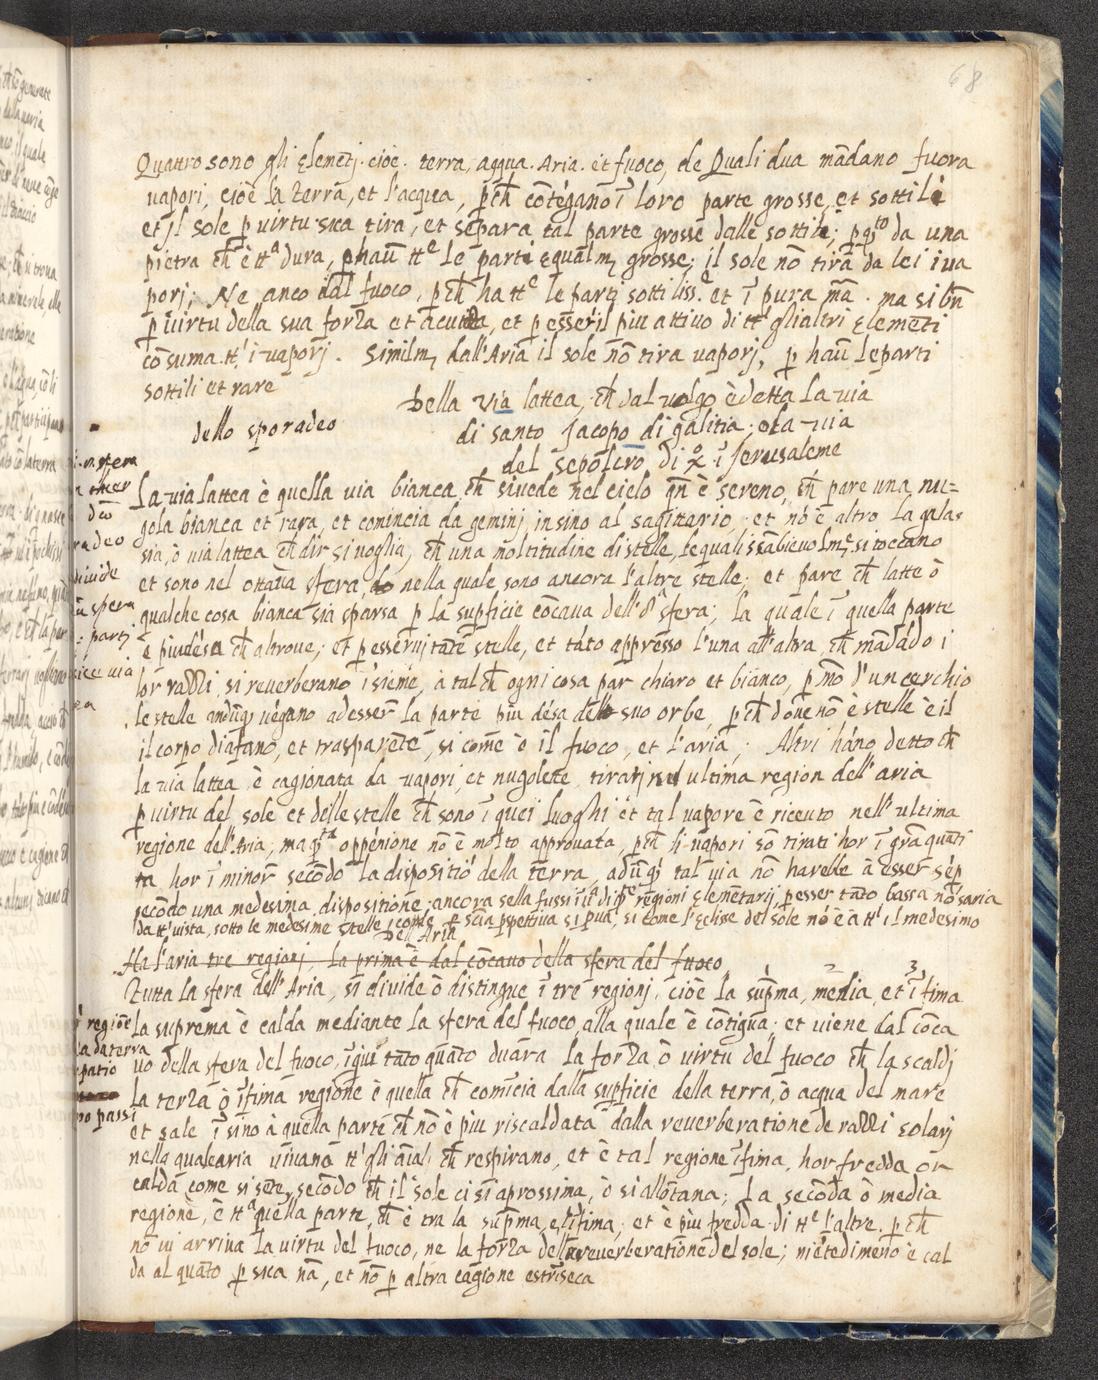 68
Quattro sono gli Elemētj. cioè. terra, acqua. Aria. et fuoco, de Quali dua mādano fuora
vapori, cioè la terra, et l'acqua, pch̄ cōtēgano ī loro parte grosse, et sottili
et jl sole p uirtu sua tira, et separa tal parte grosse dalle sottili; da una
pietra ch̄ è ttᵃ dura, p hauē ttᵉ le parti equalmᵉ grosse; il sole nō tira da lei iua
porj; Ne anco dal fuoco, pch̄ ha ttᵉ le partj sottiliss.ᵉ et ī pura mā. ma si bn̄
p uirtu della sua forza et acuita, et p esser il piu attiuo di ttⁱ gli altri Elemēti
cōsuma ttⁱ i uaporj. Similmᵉ dall'Aria il sole nō tira uaporj, p hauē le parti
sottili et rare
Della via lattea, ch̄ dal volgo è detta la uia
dello sporadeo
di santo Jacopo di galitia; o la uia
del sepolcro di ī Jerusaleme
La uia lattea è quella uia bianca ch̄ si uede nel cielo qn̄ è sereno, ch̄ pare una nu=
gola bianca et rara, et comincia da geminj insino al sagittario; et nō è altro la galas
sia, ò uia lattea ch̄ dir si uoglia, ch̄ una moltitudine di stelle, le quali si toccano
et sono nel ottaua sfera, nella quale sono ancora l'altre stelle; et pare ch̄ latte ò
qualche cosa bianca sia sparsa p la supficie cōcaua dell'8ᵃ sfera; la quale ī quella parte
è piu dēsa ch̄ altroue; et p esserui tāte stelle, et tāto appresso l'una all'altra ch̄ mādādo i
lor razzi, si reuerberano īsieme, à tal ch̄ ogni cosa par chiaro et bianco, un cerchio
le stelle uēgano ad esser la parte piu dēsa del suo orbe, pch̄ doue nō è stelle è il
il corpo diafano, et trasparēte, si come è il fuoco, et l'aria; Altri hāno detto ch̄
la uia lattea è cagionata da uapori, et nugolette tiratj nel ultima region dell'aria
p uirtu del sole et delle stelle ch̄ sono ī quei luoghi et tal uapore è riceuto nell'ultima
regione dell'Aria; ma qstᵃ oppenione nō è molto approuata, pch̄ li uapori sō tirati hor ī grā quāti
tà hor ī minor secōdo la dispositiō della terra, adūqᵉ tal uia nō harebbe à esser sēp
secōdo una medesima dispositione; ancora se la fussi ī di regioni Elemētarij, p esser tāto bassa nō saria
da ttⁱ uista, sotto le medesime stelle, come p sciā pspettiua si pua, si come l'Eclisse del sole nō è à ttⁱ il medesimo
Dell'Aria
Ha l'aria tre regionj, la prima è dal cōcauo della sfera del fuoco
1 2 3
Tutta la sfera dell'Aria, si diuide ò distingue ī tre regionj, cioè la sup̄ma, media, et ifima
la suprema è calda mediante la sfera del fuoco, alla quale è cōtigua; et uiene dal cōca
uo della sfera del fuoco, īqui tāto quāto duāra la forza ò uirtu del fuoco ch̄ la scaldj
la terza ò īfima regione è quella ch̄ comīcia dalla supficie della terra, ò acqua del mare
et sale ī sino à quella parte ch̄ nō è piu riscaldata dalla reuerberatione de razzi solarj
nella quale aria uiuano ttⁱ gli āial ch̄ respirano, et è tal regione īfima, hor fredda or
calda come si sēte, secōdo ch̄ il sole ci si aprossima, ò si allōtana; La secōda ò media
regione, è ttᵃ quella parte, ch̄ è tra la sup̄ma, e l'ifima; et è piu fredda di ttᵉ l'altre, pch̄
nō ui arriua la uirtu del fuoco, ne la forza della reuerberatione del sole; niētedimeno è cal
da al quāto p sua nā, et nō p altra cagione estrīseca
sfera
radeo
diuide
sfera
partj
uia
regiōe
da terra
spatio
passi